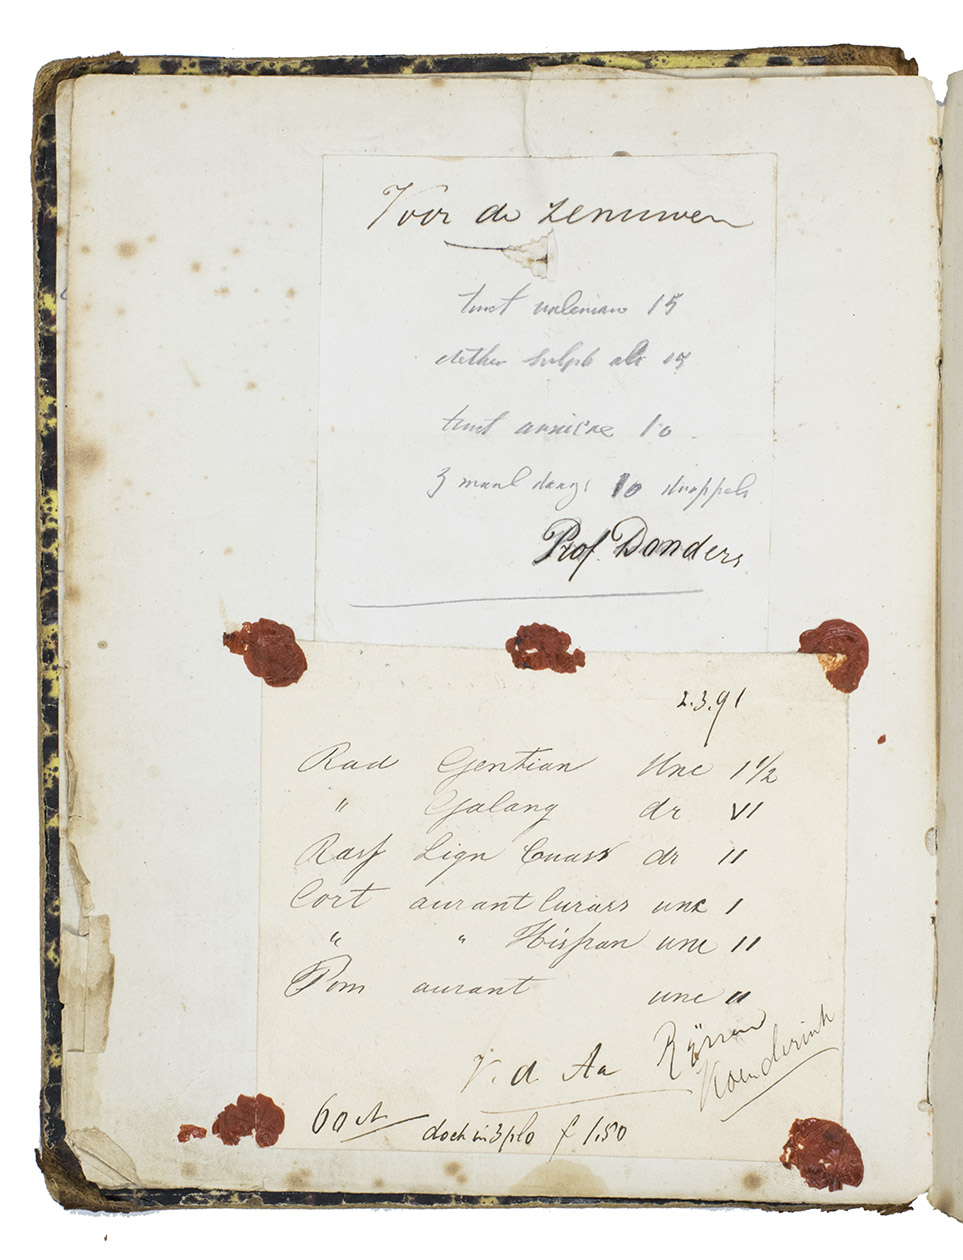 Voor de zenuwen
tinct valerian 15
aether sulph alc 15
tinct arnicae 10
3 maal daags 10 druppels
Prof. Donders
2.3.91
Rad Gentian Unc 1 1/2
" Galang dr VI
Rasf Lign Quass dr II
Cort aurant Curass unc I
" " Hispan unc II
Pom aurant unc II
V. d Aa Rijssen
Koenderink
60 ct
doch in 3plo f 1,50